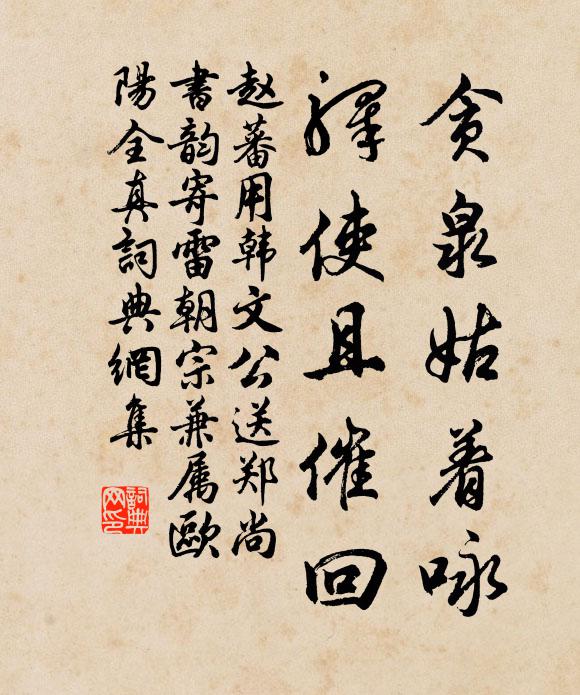 贪泉姑着咏
驿使且催回
赵蕃用韩文公送郑尚
書韵寄雷朝宗兼属歐
陽全真詞典網集
詞典
网印